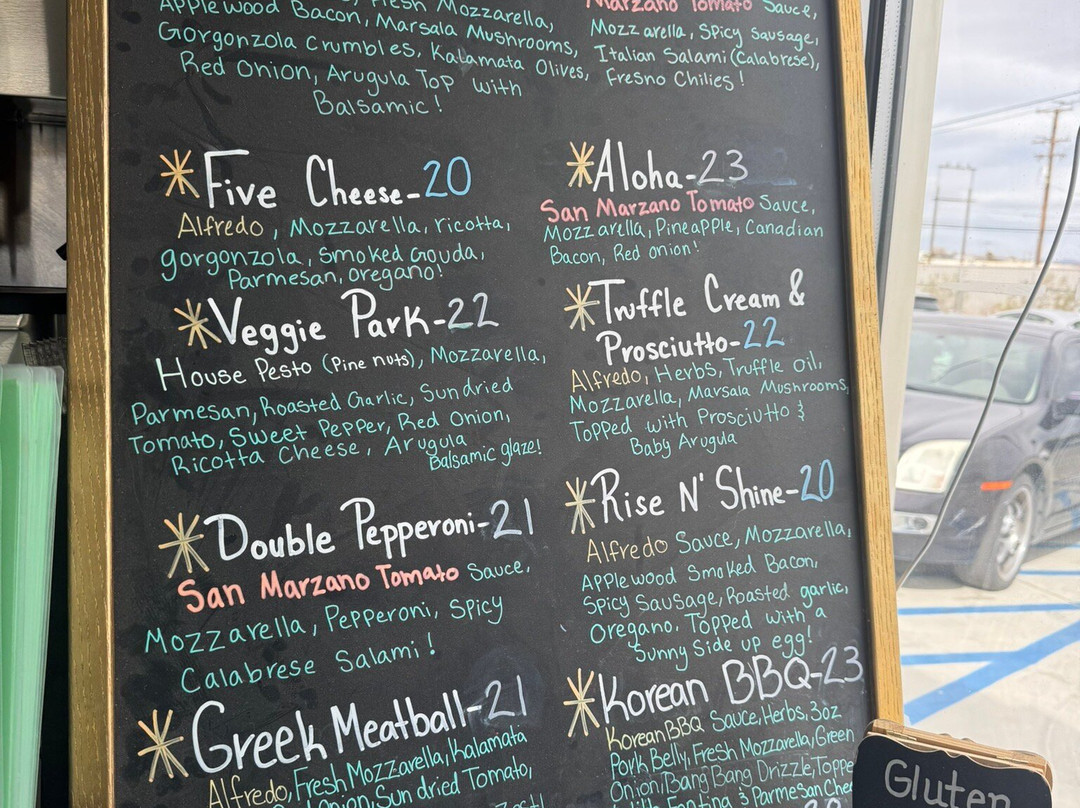 Applewood Bacon, Fresh Mozzarella,
Marsala Mushrooms,
Gorgonzola Crumbles, Kalamata Olives,
Red Onion, Arugula Top with
Balsamic!
Marzano Tomato Sauce,
Mozzarella, Spicy Sausage,
Italian Salami (Calabrese),
Fresno Chilies!
*Five Cheese-20
Alfredo, Mozzarella, ricotta,
gorgonzola, smoked Gouda,
Parmesan, oregano!
*Veggie Park-22
House Pesto (Pine nuts), Mozzarella,
Parmesan, Roasted Garlic, Sundried
Tomato, Sweet Pepper, Red Onion,
Ricotta Cheese, Arugula
Balsamic glaze!
*Double Pepperoni-21
San Marzano Tomato Sauce,
Mozzarella, Pepperoni, Spicy
Calabrese Salami!
*Greek Meatball-21
Alfredo, Fresh Mozzarella, Kalamata
Onion, Sun dried Tomato,
*Aloha-23
San Marzano Tomato Sauce,
Mozzarella, Pineapple, Canadian
Bacon, Red onion!
*Truffle Cream &
Prosciutto-22
Alfredo, Herbs, Truffle Oil,
Mozzarella, Marsala Mushrooms,
Topped with Prosciutto &
Baby Arugula
*Rise N' Shine-20
Alfredo Sauce, Mozzarella,
Applewood Smoked Bacon,
Spicy Sausage, Roasted garlic,
Oregano, Topped with a
Sunny Side up egg!
*Korean BBQ-23
Korean BBQ Sauce, Herbs, 3oz
Pork Belly, Fresh Mozzarella, Green
Onion, Bang Bang Drizzle, Toppe
Fontina & Parmesan Chee
Gluten